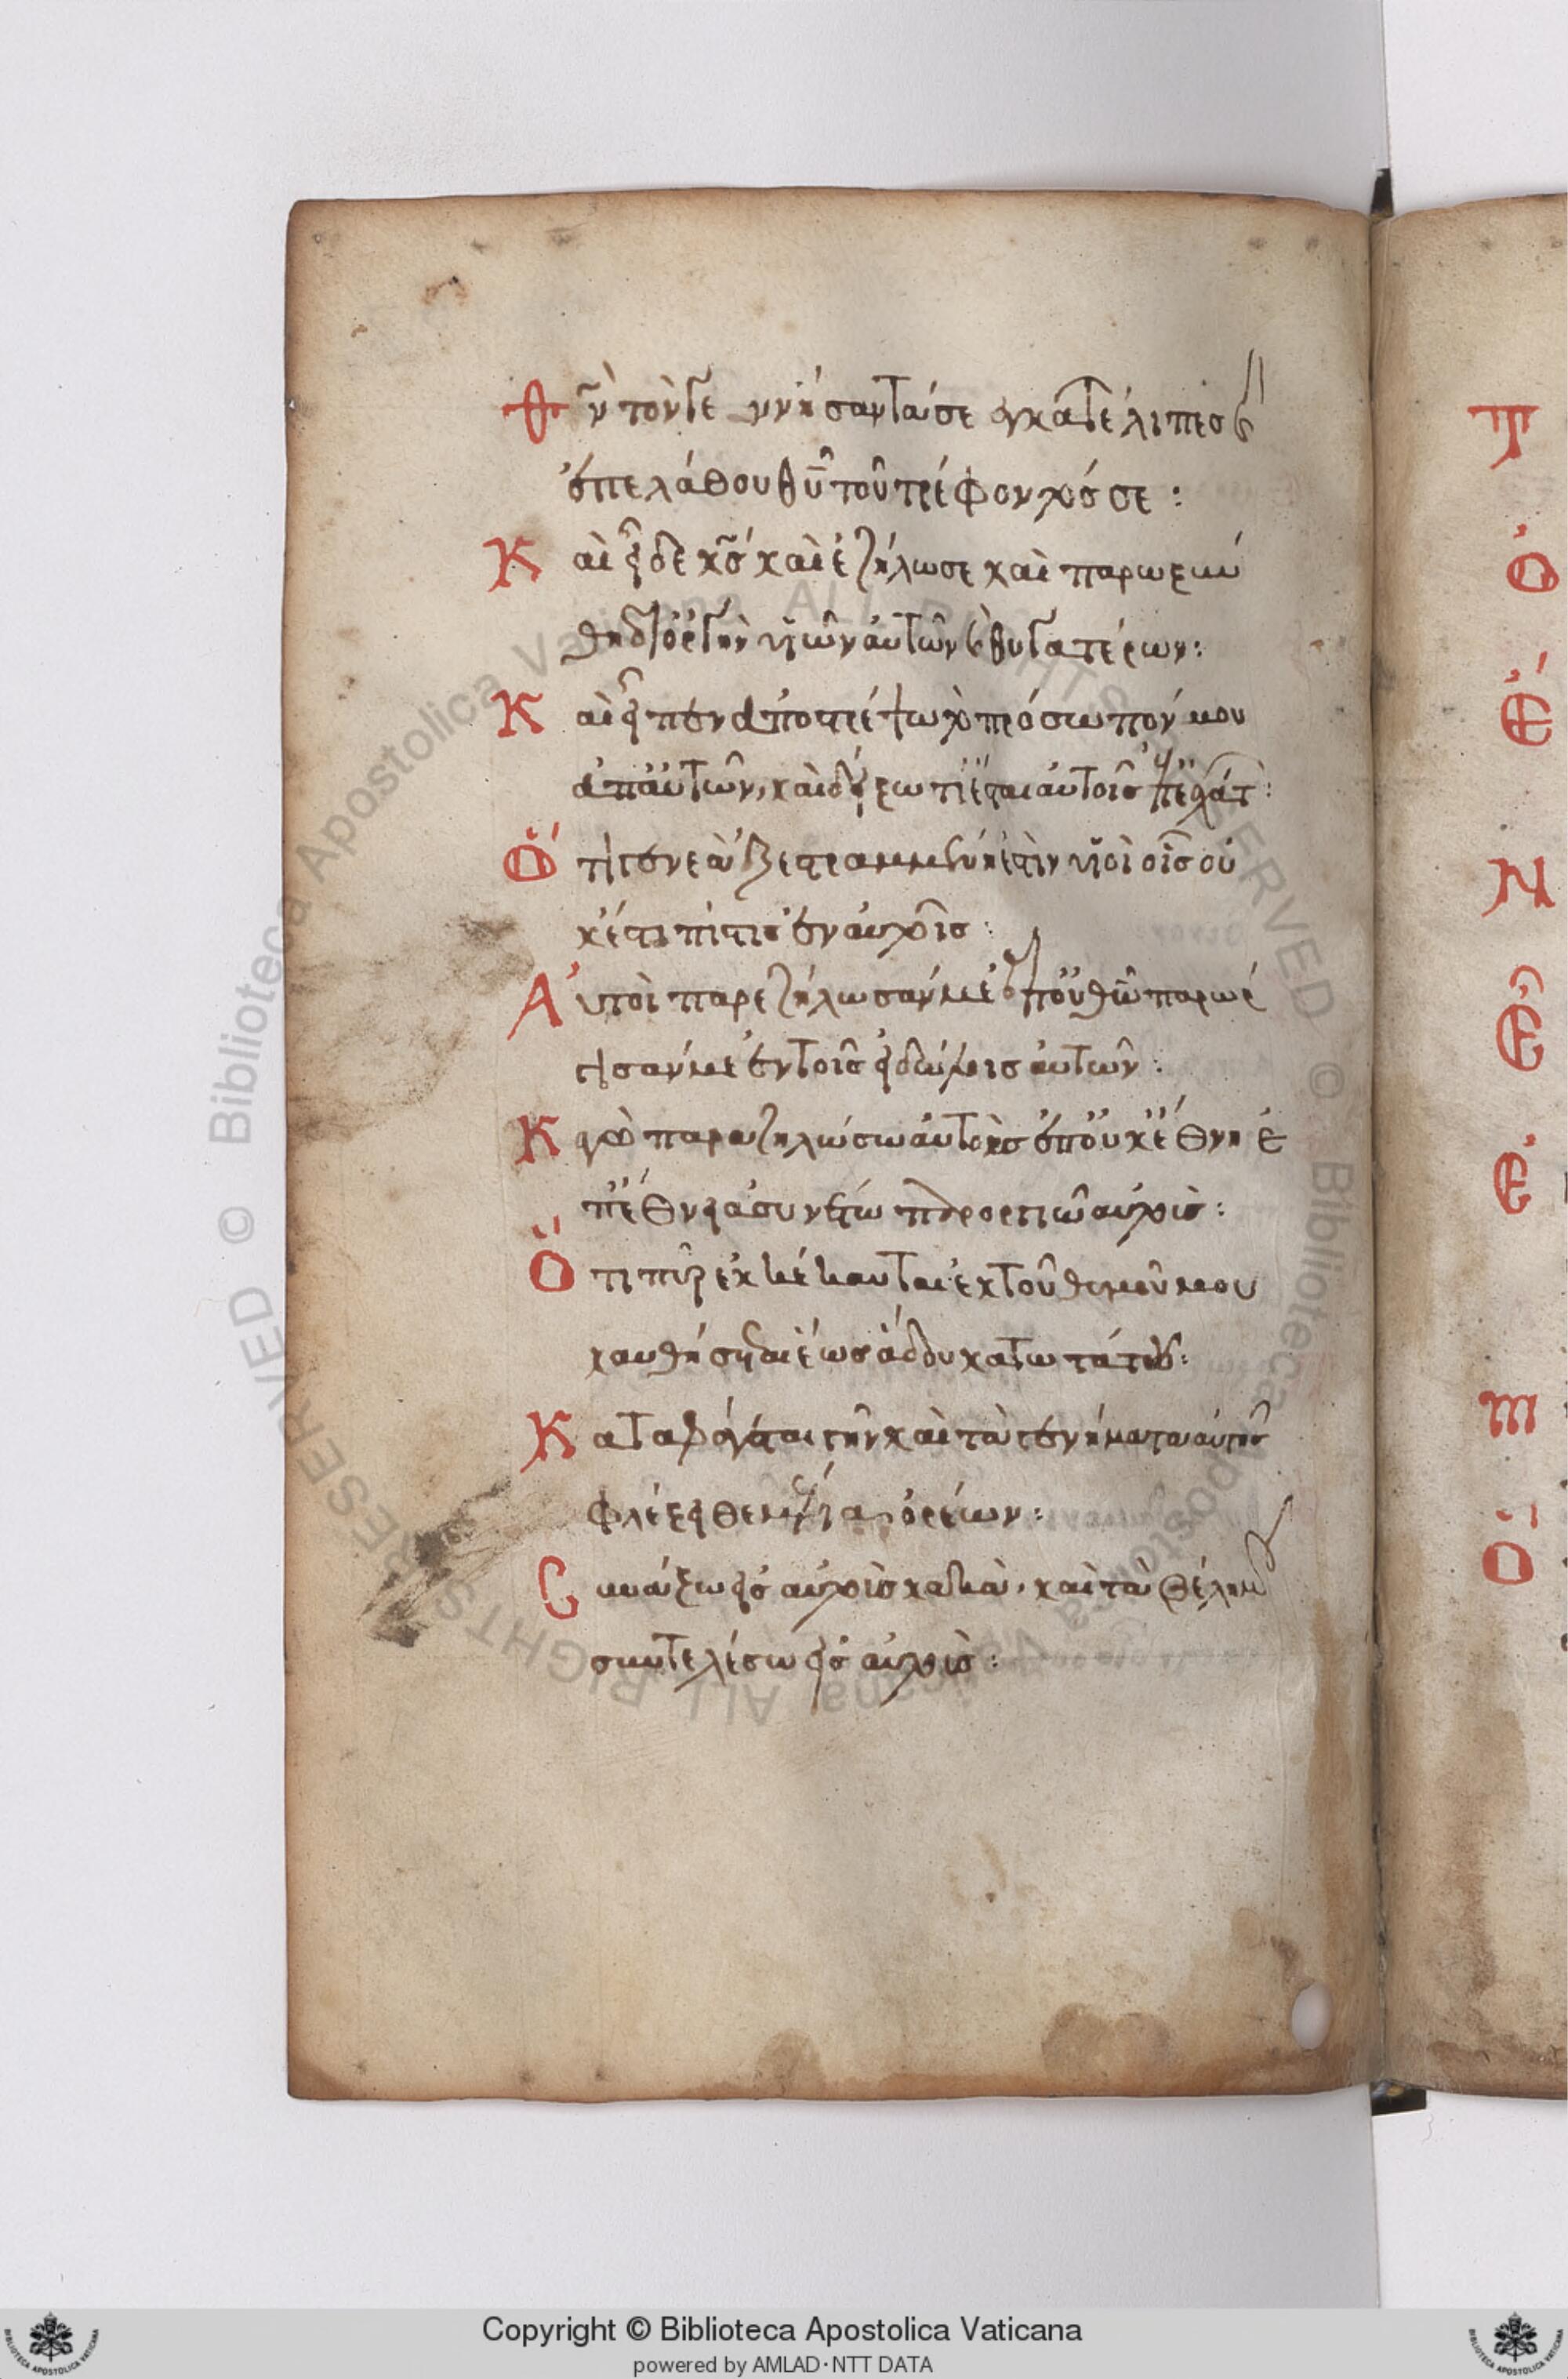 Θν̅ τὸν γεννήσαντά σε ἐγκατέλιπες καὶ
ἐπελάθου θυ̅ τοῦ τρέφοντός σε:
Καὶ εἶδε κς̅ καὶ ἐζήλωσε καὶ παρωξύν
θη δι' ὀργὴν υἱῶν αὐτῶν καὶ θυγατέρων:
Καὶ εἶπεν ἀποστρέψω τὸ πρόσωπόν μου
ἀπ' αὐτῶν, καὶ δείξω τί ἔσται αὐτοῖς ἐπ' ἐσχάτ:
Ὅτι γενεὰ ἐξεστραμμένη ἐστὶν υἱοὶ οἷς οὐ
κ ἔστι πίστις ἐν αὐτοῖς:
Αὐτοὶ παρεζήλωσάν με ἐπ' οὐ θεῶ παρώρ
γισάν με ἐν τοῖς εἰδώλοις αὐτῶν:
Κἀγὼ παραζηλώσω αὐτοὺς ἐπ' οὐκ ἔθνη ἐ
π' ἔθνει ἀσυνέτω παροργιῶ αὐτούς:
Ὅτι πῦρ ἐκκέκαυται ἐκ τοῦ θυμοῦ μου
καυθήσεται ἕως ἅδου κατωτάτου:
Καταφάγεται γῆν καὶ τὰ γενήματα αὐτῆς
φλέξει θεμέλια ὀρέων:
Συνάξω εἰς αὐτοὺς κακὰ, καὶ τὰ βέλη μου
συντελέσω εἰς αὐτούς:
Τ
Ὁ
Ἔ
Ν
Ἐ
Ἐ
Μ
Ὁ
Copyright © Biblioteca Apostolica Vaticana
powered by AMLAD·NTT DATA